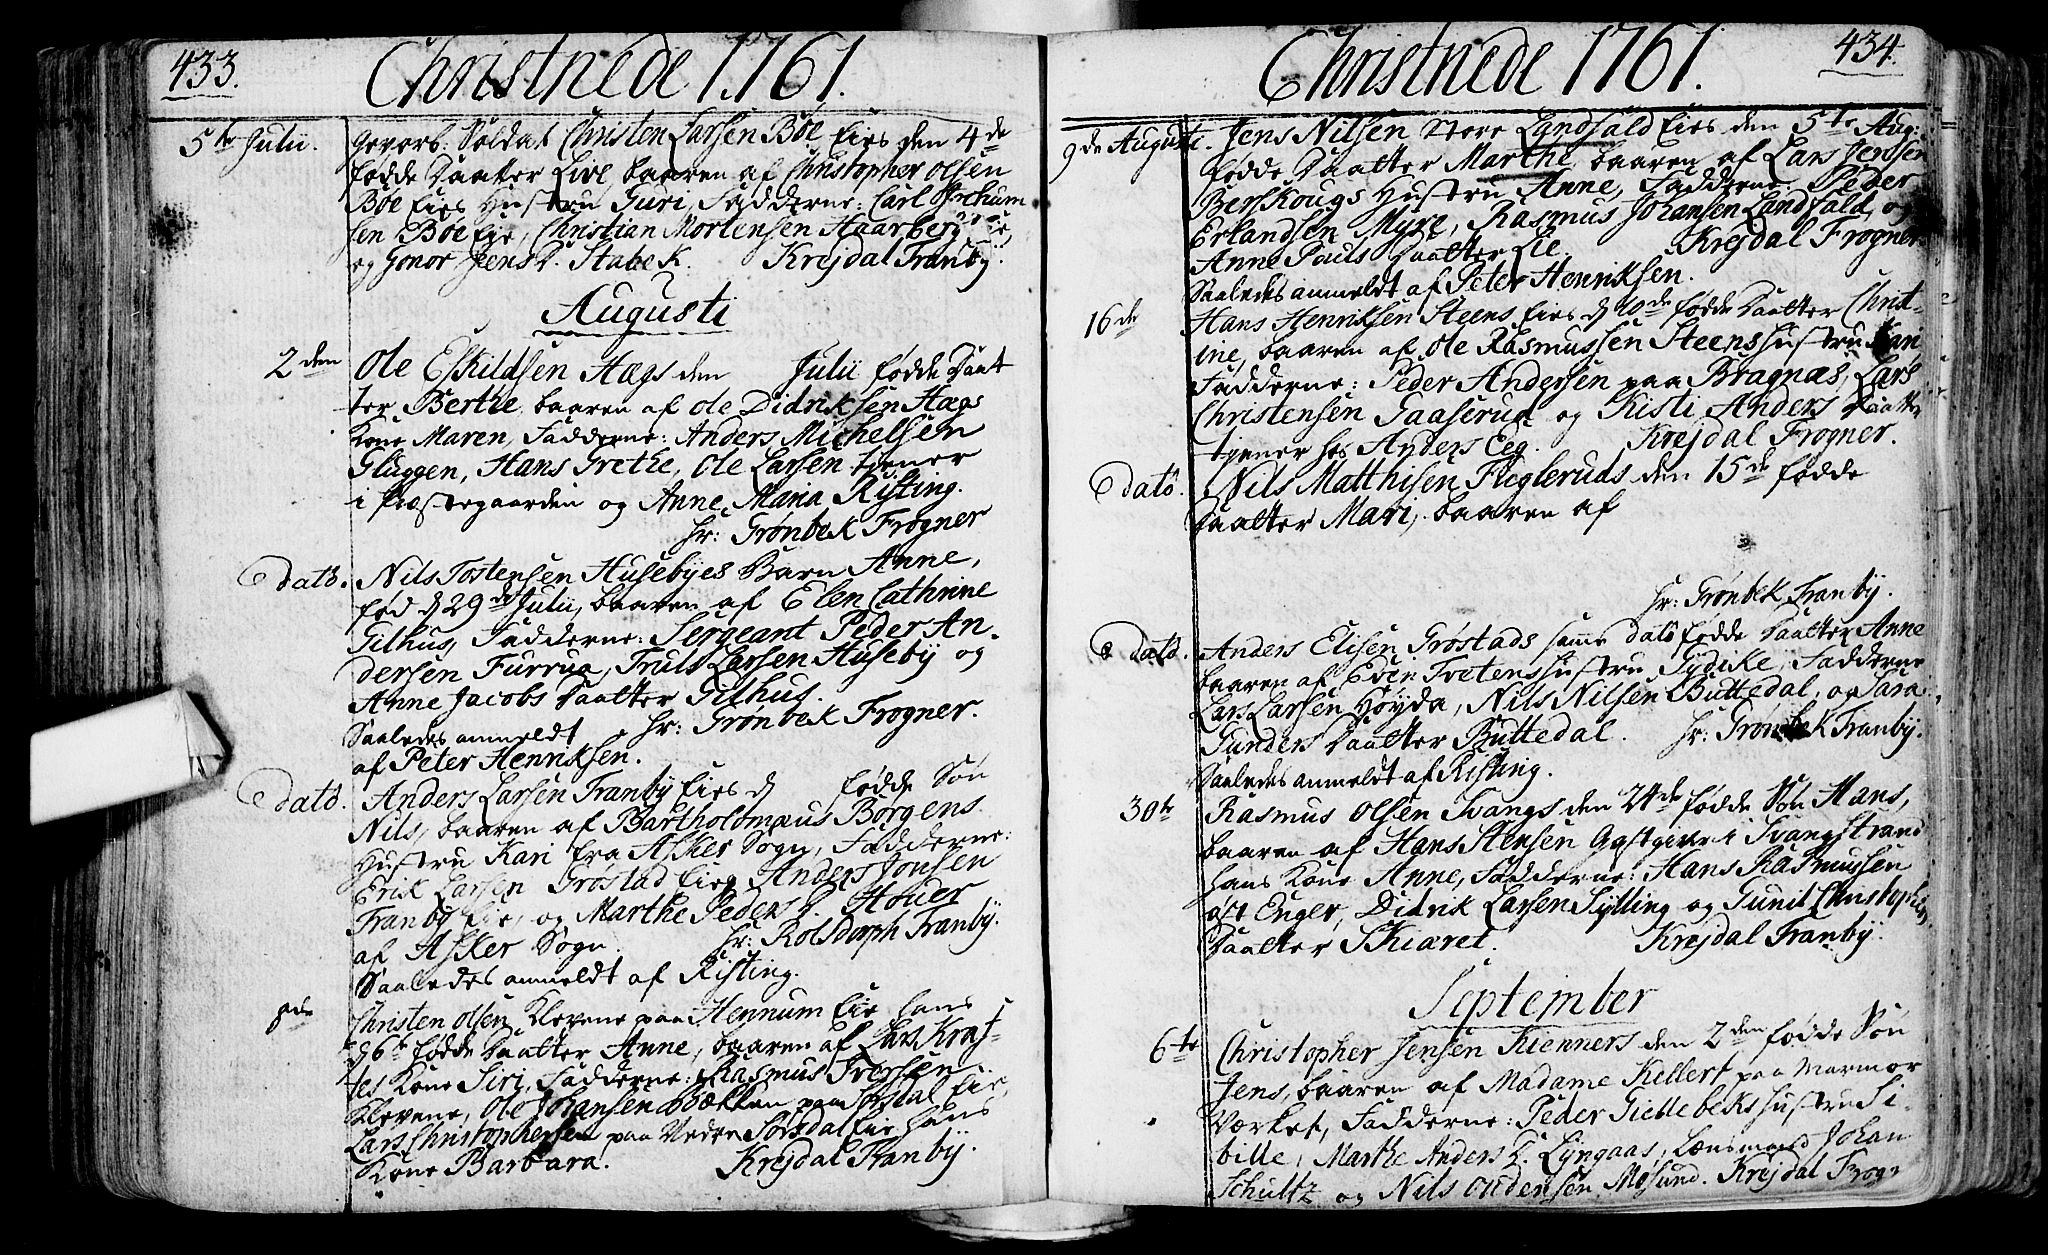 433.
Christnede 1761.
5te Julii. Gevorb: Soldat Christen Larsen Bøe Eies den 4de
fødde Daatter Live, baaren af Christopher Olsen
Bøe Eies Hustru Guri, Fadderne: Carl
sen Bøe Eje, Christian Mortensen Haarberg
og Gonor Jens D. Stabek. Krejdal Franby.
Augusti
2den Ole Eskildsen Hægs den Julii fødde Daat
ter Berthe, baaren af Ole Didriksen Hægs
Kone Maren, Fadderne: Anders Michelsen
Gluggen, Hans Grethe, Ole Larsen tjener
i Præstegaarden og Anne Maria Risting.
Hr: Grønbek Frogner
Dato. Nils Tostensen Husebyes Barn Anne,
fød d 29de Julii, baaren af Elen Cathrine
Gilhus, Fadderne: Sergeant Peder An-
dersen Furrua, Truls Larsen Huseby og
Anne Jacobs Daatter Gilhus.
Saaledes anmeldt Hr: Grønbek Frogner.
af Peter Henriksen.
Dato. Anders Larsen Franby Eies d fødde Søn
Nils, baaren af Bartholomæus Borgens
Hustru Kari fra Asker Sogn, Fadderne:
Erik Larsen Grøstad Eie, Anders Jonsen
Franby Eie, og Marthe Peders D. Houer
af Asker Sogn. Hr: Rolsdorph Franby.
Saaledes anmeldt af Risting.
Christen Olsen Klevene paa Hennum Eie hans
d 6te fødde Daatter Anne, baaren af Lars Kraf-
tes Kone Siri, Fadderne: Rasmus Iversen
Klevene, Ole Johansen Bækken paa Sørsdal Eie,
Lars Christophersen paa Nedre Sørsdal Eie hans
Kone Barbara. Krejdal Franby.
434.
Christnede 1761.
9de Augusti. Jens Nilsen Store Landfald Eies den 5te Aug:
fødde Daatter Marthe, baaren af Lars Jensen
Berskougs Hustru Anne, Fadderne: Peder
Erlandsen Myre, Rasmus Johansen Landfald, og
Anne Pouls Daatter Lie. Krejdal Frogner.
Saaledes anmeldt af Peter Henriksen.
16de Hans Henriksen Steens Eies d 10de fødde Daatter Christ-
ine, baaren af Ole Rasmussen Steens Hustru Kari
Fadderne: Peder Andersen paa Bragnæs, Lars
Christensen Gaaserud og Kisti Anders Daatter
tjener hos Anders Eeg. Krejdal Frogner.
Dato. Nils Matthisen Fogleruds den 15de fødde
Daatter Mari, baaren af
Hr: Grønbek Franby.
Dato. Anders Elisen Grøstads samme dato fødde Daatter Anne
baaren af Even Tvetens Hustru Sydike, Fadderne
Lars Larsen Høyda, Nils Nilsen Buttedal, og Sara
Gunders Daatter Buttedal. Hr: Grønbek Franby.
Saaledes anmeldt af Risting.
30te Rasmus Olsen Svangs den 24de fødde Søn Hans,
baaren af Hans Stensen Gæstgiver i Svangstrand
hans Kone Anne, Fadderne: Hans Rasmussen
øst Enger, Didrik Larsen Sylling og Gunil Christophers
Daatter Skiæret. Krejdal Franby.
September
6te Christopher Jensen Kienners den 2den fødde Søn
Jens, baaren af Madame Kellert paa Marmor
Værket, Fadderne: Peder Giellebeks Hustru Si-
bille, Marthe Anders D. Lyngaas, Lænsmand Johan
Schultz og Nils Mosund. Krejdal Frogn